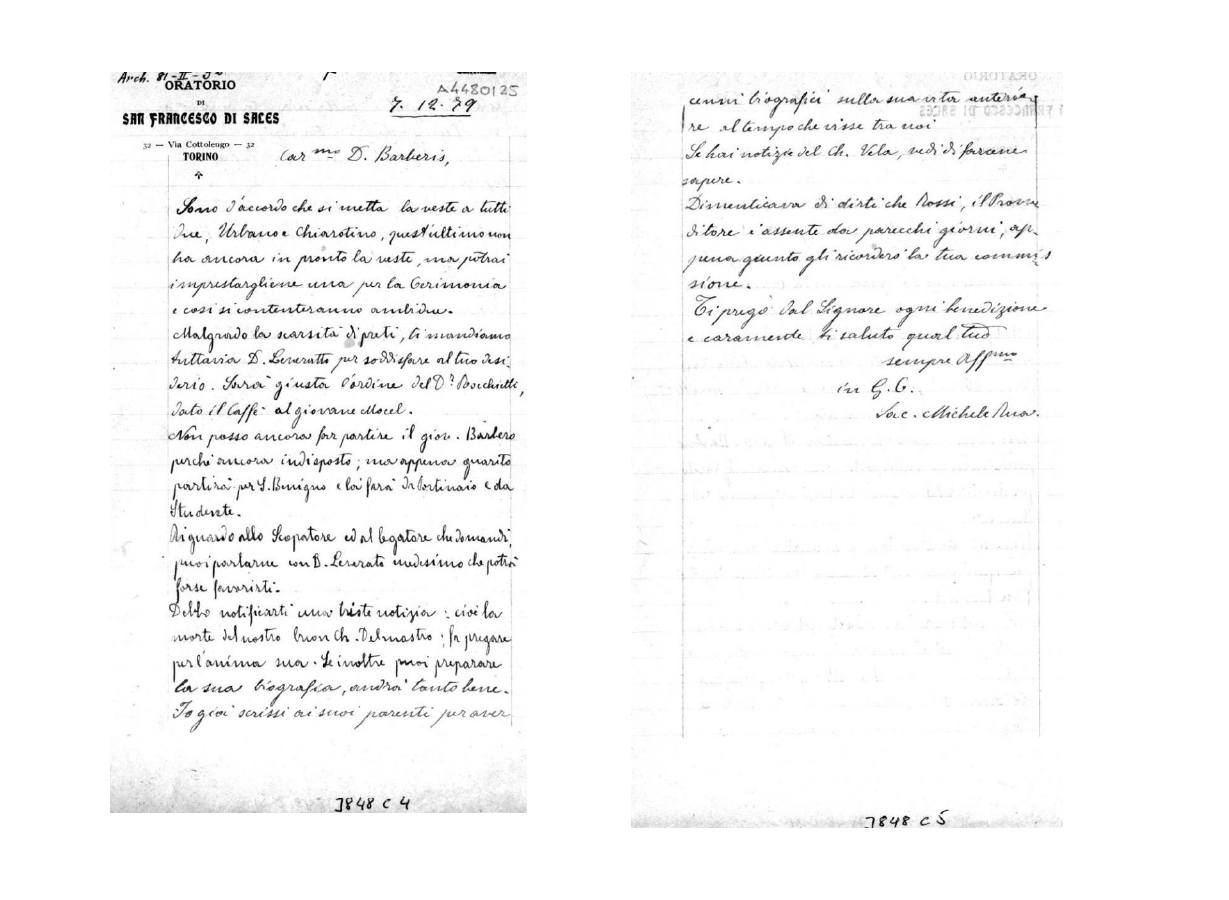 Arch. 81-II-
ORATORIO
DI
SAN FRANCESCO DI SALES
32 — Via Cottolengo — 32
TORINO
A4480125
7. 12. 79
Car.mo D. Barberis,
Sono d'accordo che si metta la veste a tutti
due, Urbano e Chiarotino, quest'ultimo non
ha ancora in pronto la veste, ma potrai
imprestargliene una per la Cerimonia
e così si contenteranno ambidue.
Malgrado la scarsità di preti, ti mandiamo
tuttavia D. Leveratto per soddisfare al tuo desi-
derio. Sarà giusta l'ordine del D.r Bocchietti,
dato il Caffè al giovane Mocel.
Non posso ancora far partire il giov. Barbero
perchè ancora indisposto; ma appena guarito
partirà per S. Benigno e la farà da Portinaio e da
Studente.
Riguardo allo Scopatore ed al legatore che domandi,
puoi parlarne con D. Leverato medesimo che potrà
forse favorirti.
Debbo notificarti una triste notizia: cioè la
morte del nostro buon Ch. Delmastro; fa pregare
per l'anima sua. Se inoltre puoi preparare
la sua biografia, andrà tanto bene.
Io già scrissi ai suoi parenti per aver
J848 C 4
cenni biografici sulla sua vita anterio-
re al tempo che visse tra noi
Se hai notizie del Ch. Vela, vedi di farcene
sapere.
Dimenticava di dirti che Rossi, il Provve
ditore è assente da parecchi giorni, ap-
pena giunto gli ricorderò la tua commis
sione.
Ti prego dal Signore ogni benedizione
e caramente ti saluto qual tuo
sempre Aff.mo
in G. C.
Sac. Michele Rua.
J848 C 5